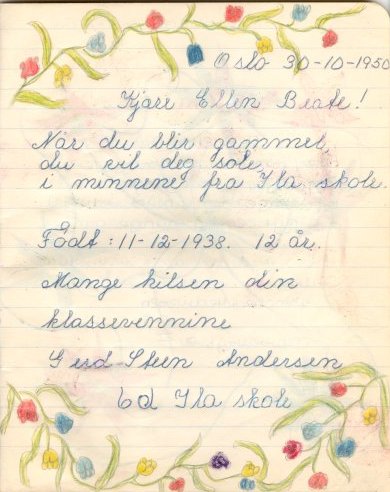 Oslo 30-10-1950
Kjære Ellen Beate!
Når du blir gammel,
du vil deg sole,
i minnene fra Ila skole.
Født: 11-12-1938. 12 år.
Mange hilsen din
klassevennine
Gerd-Steen Andersen
6d Ila skole